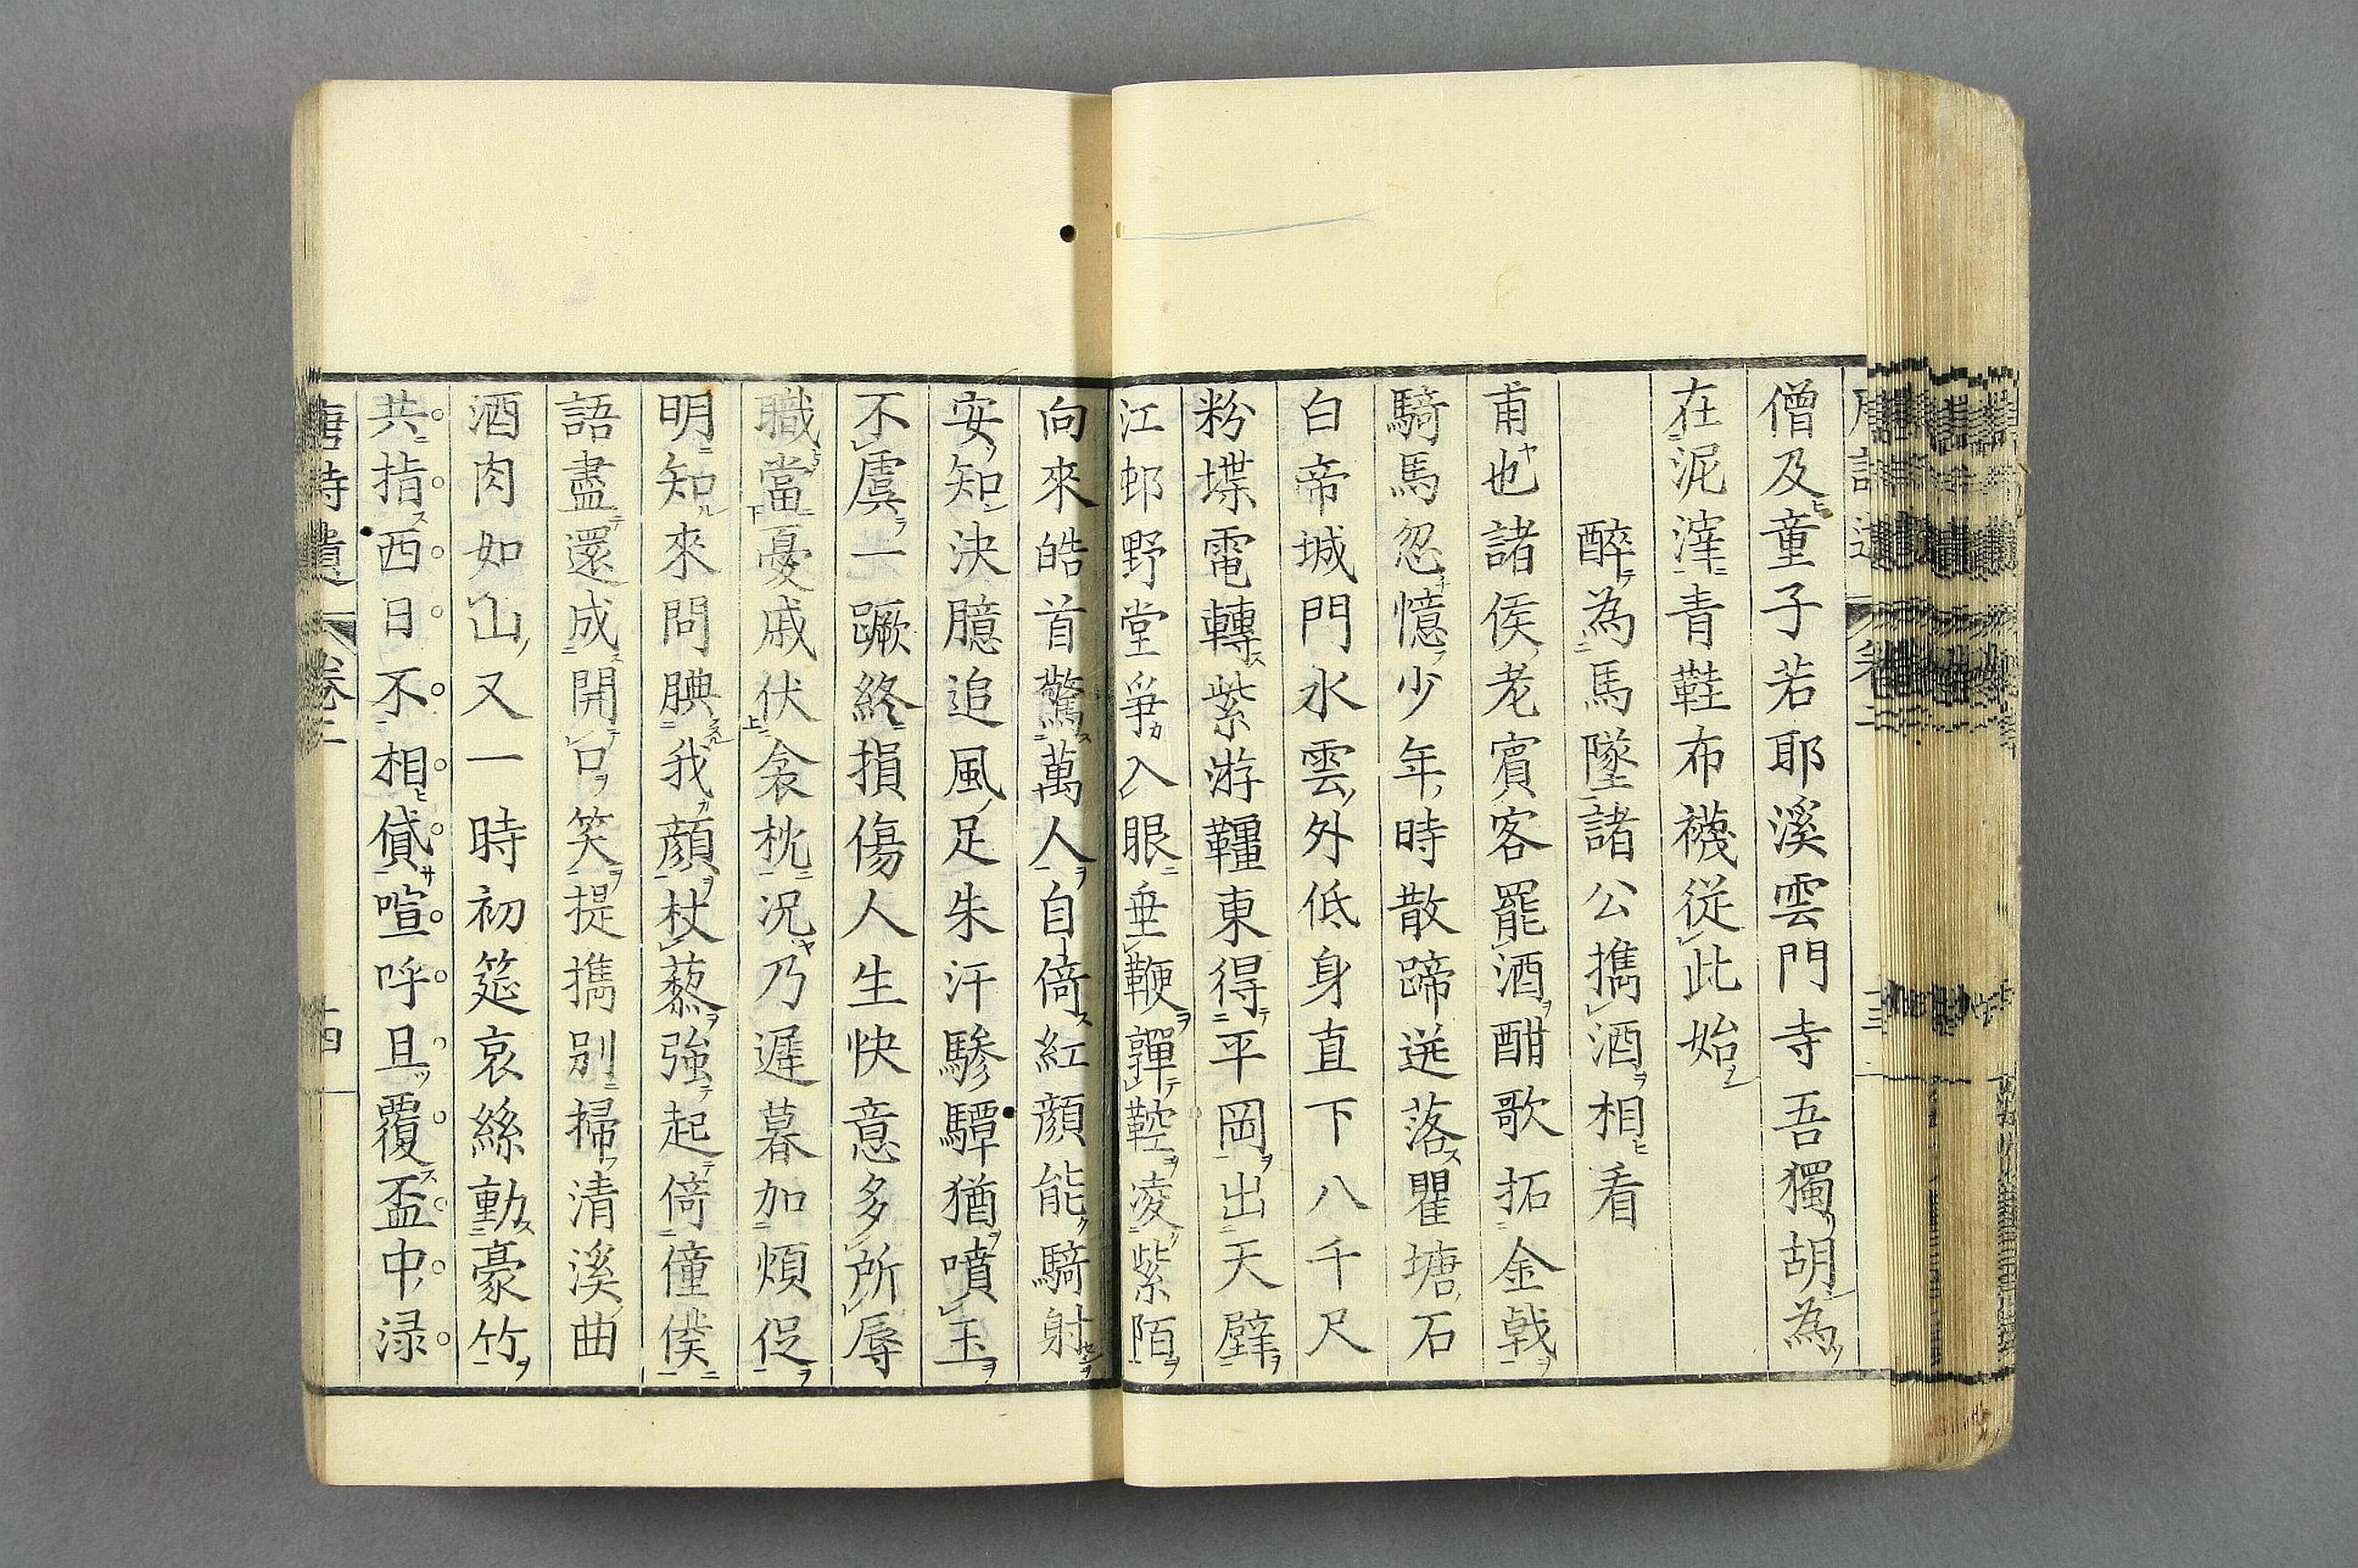 僧及童子若耶溪雲門寺吾獨胡為
在泥滓青鞋布襪従此始
醉為馬墜諸公攜酒相看
甫也諸侯老賓客罷酒酣歌拓金戟
騎馬忽憶少年時散蹄迸落瞿塘石
白帝城門水雲外低身直下八千尺
粉堞電轉紫游韁東得平岡出天壁
江邨野堂爭入眼垂鞭嚲鞚凌紫陌
向來皓首驚萬人自倚紅顔能騎射
安知決臆追風足朱汗驂驔猶噴玉
不虞一蹶終損傷人生快意多所辱
職當憂戚伏衾枕况乃遲暮加煩促
明知來問腆我顔杖藜強起倚僮僕
語盡還成開口笑提攜別掃清溪曲
酒肉如山又一時初筵哀絲動豪竹
共指西日不相貸喧呼且覆盃中渌
唐詩遺 卷二 十四